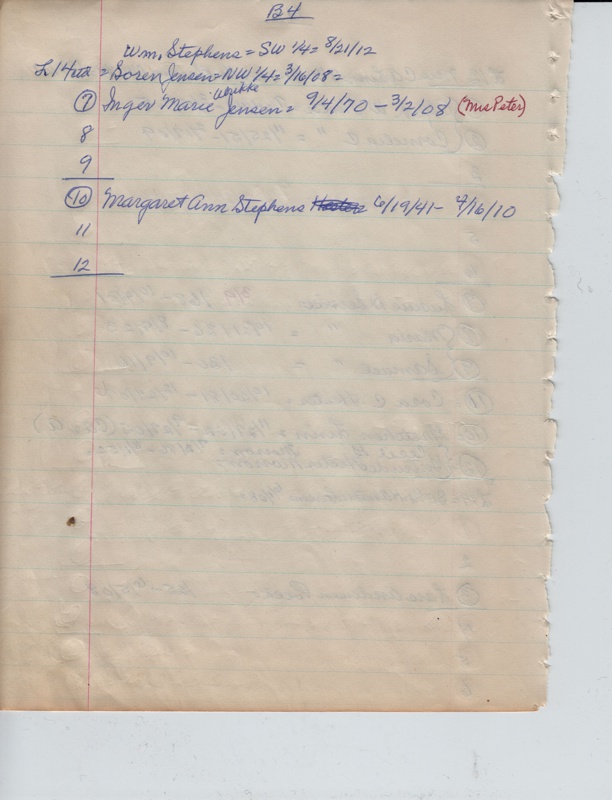 B4
Wm. Stephens = SW 1/4 = 8/21/12
L 14 = Soren Jensen = NW 1/4 = 3/16/08 =
Ulrikke
7 Inger Marie Jensen = 9/4/70 - 3/2/08 (Mrs Peter)
8
9
10 Margaret Ann Stephens 6/19/41 - 7/16/10
11
12